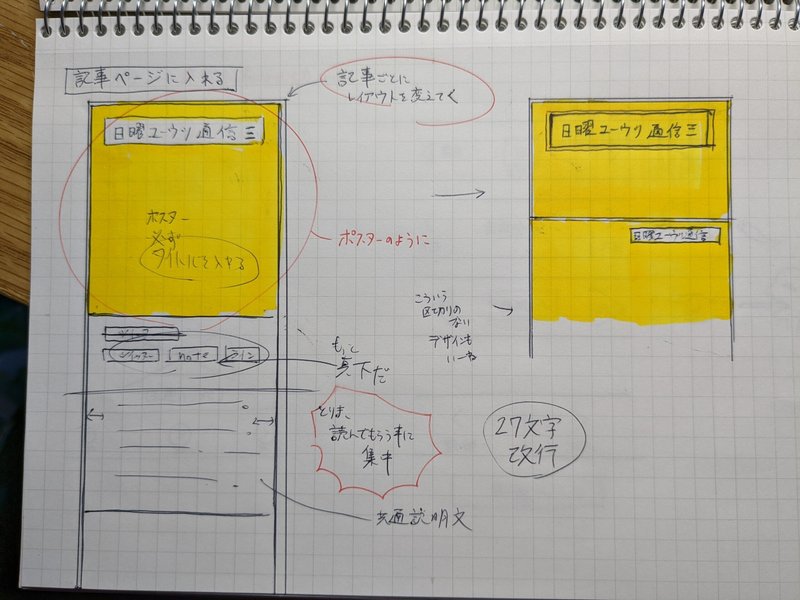 記事ページに入れる
記事ごとに
レイアウトを変えてく
日曜ユーウツ通信三
ポスター
必ず
タイトルを入れる
ポスターのように
note
ライン
もっと
真下だ
とりま、
読んでもらう事に
集中
共通説明文
日曜ユーウツ通信三
日曜ユーウツ通信
こういう
区切りの
ない
デザインも
いーね
27文字
改行